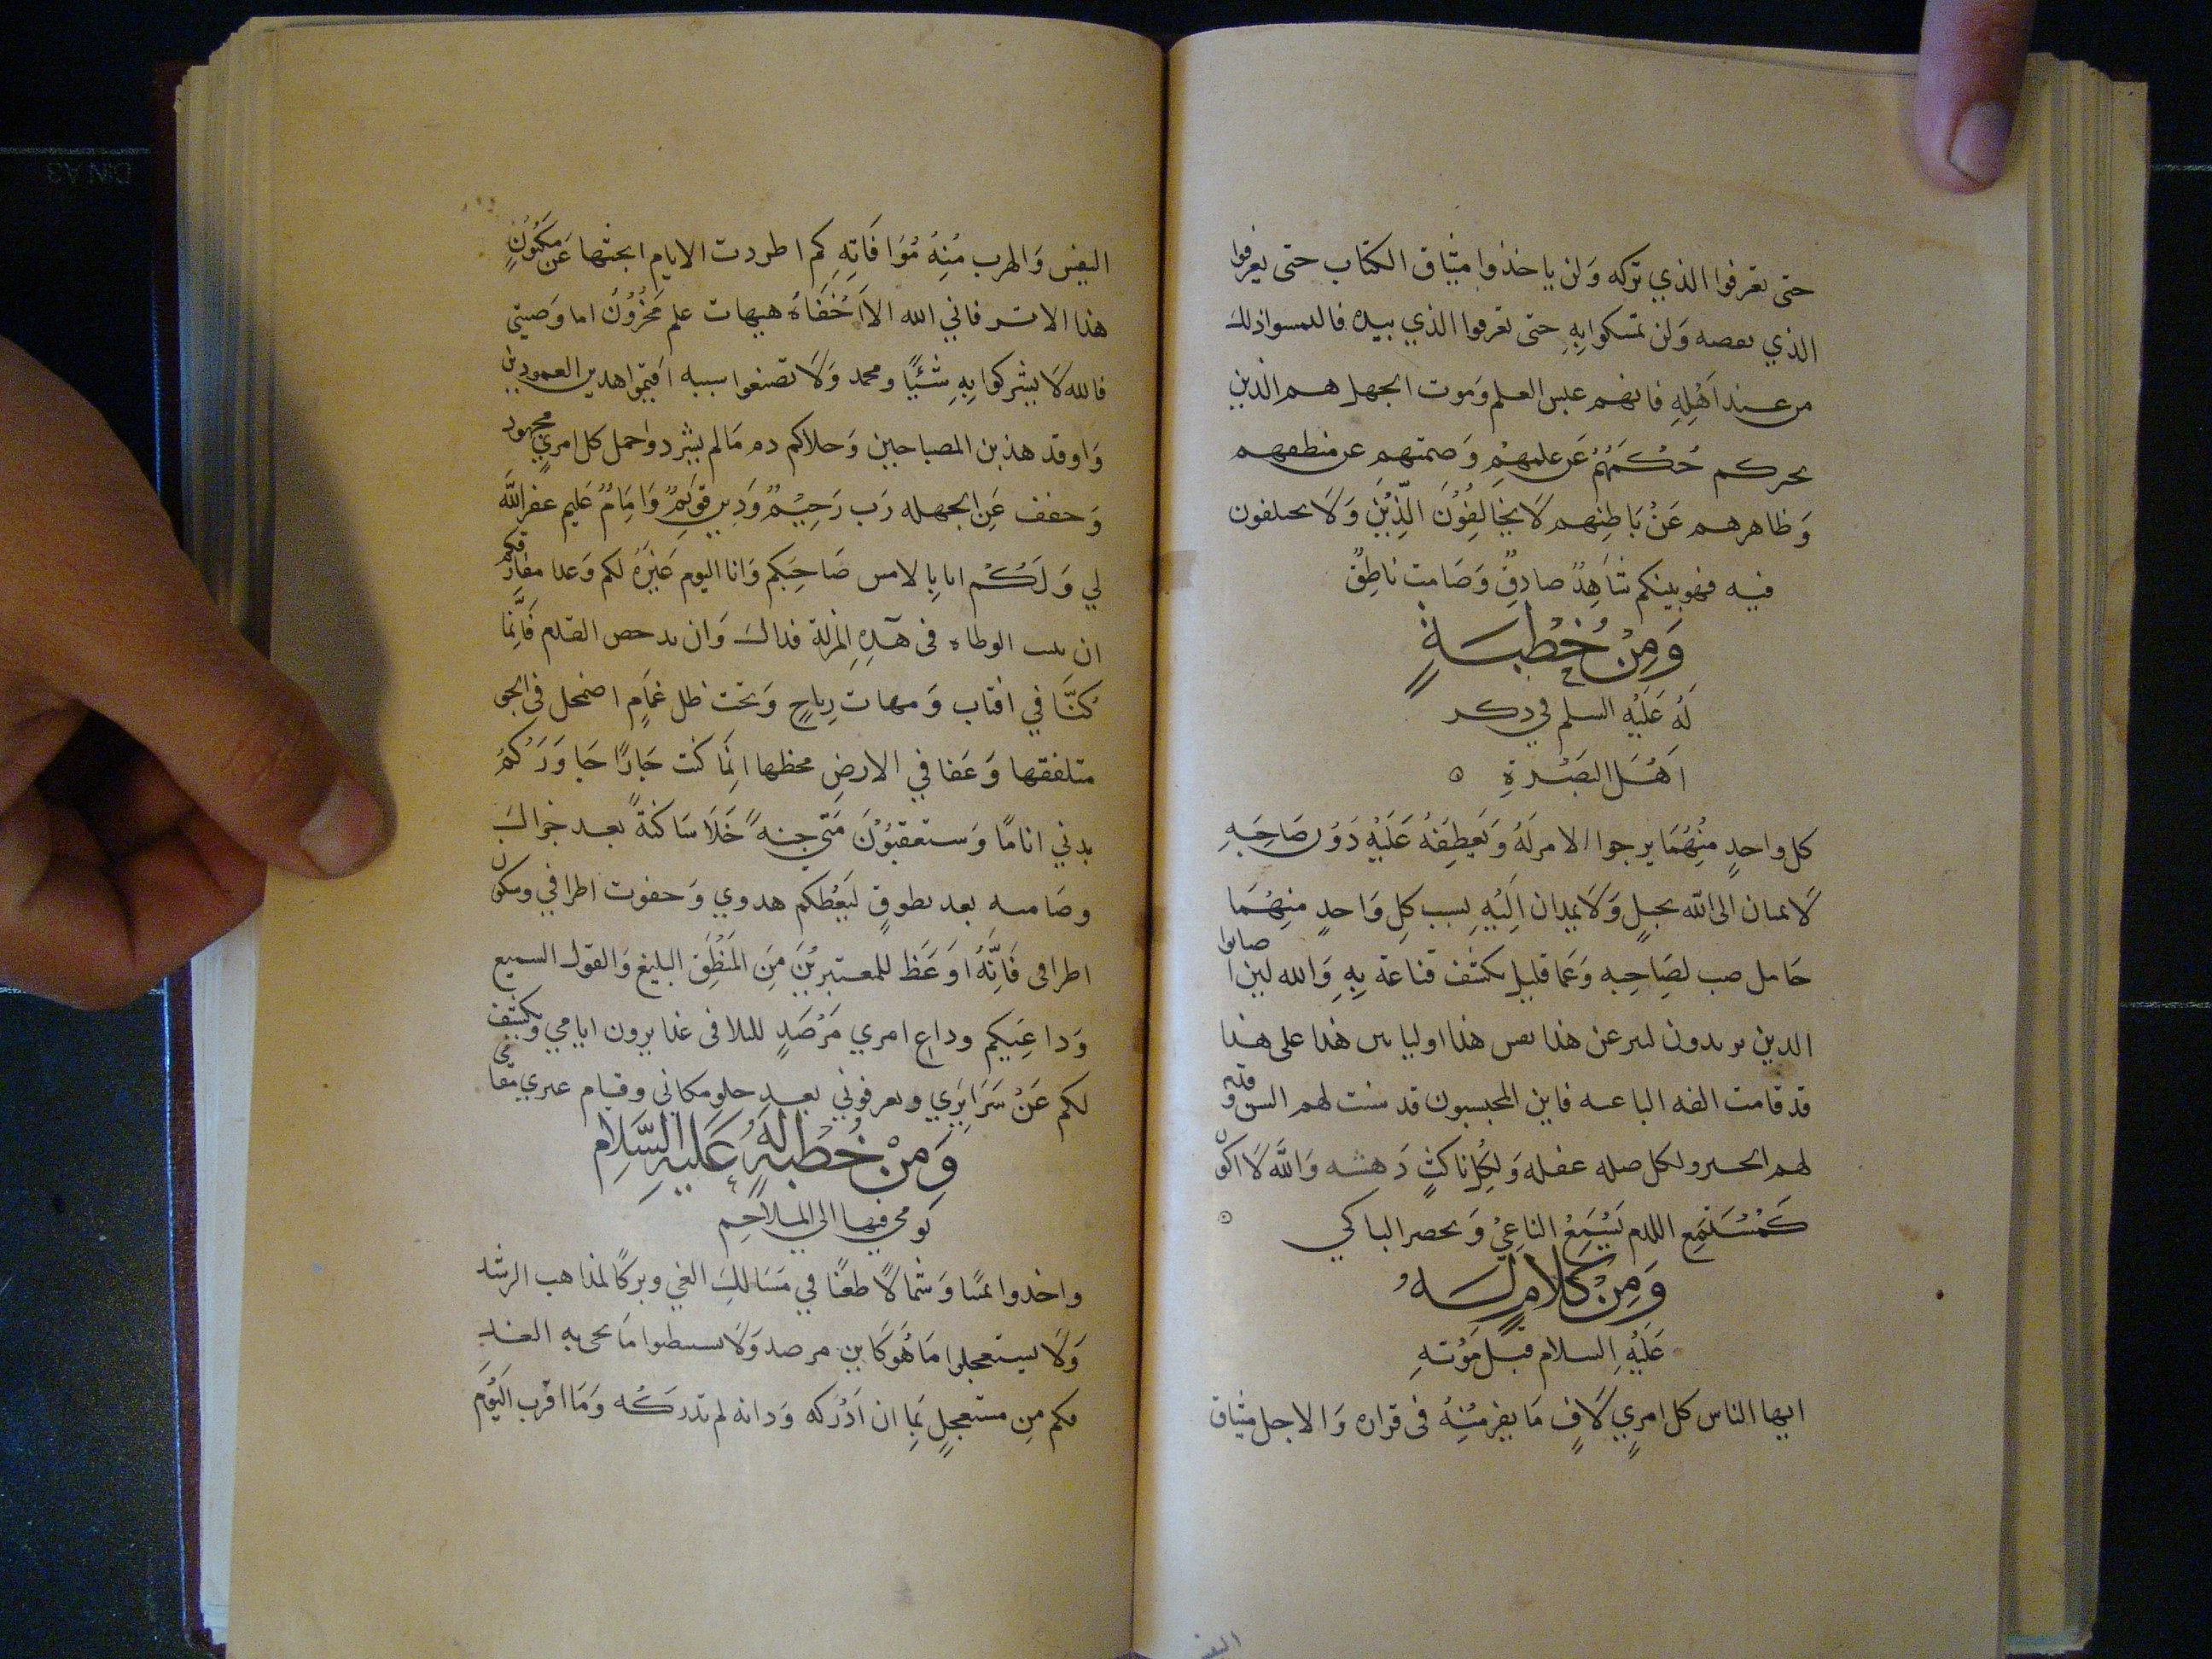 حتى تعرفوا الذي تركه وَلن ياخذوا ميثاق الكتاب حتى يعرفوا
الذي نقضه وَلن تمسكوا بِهِ حتى تعرفوا الذي نبذه فالتمسوا ذلك
من عند اَهْلِهِ فانهم عيش العلم وَموت الجهل هم الذين
يخبركم حُكْمَهُمْ عَن علمهِمْ وَصمتهم عن منطقهم
وَظاهرهم عَنْ بَاطِنِهم لَا يخَالِفُوْنَ الدِّيْنَ وَلَا يختلفون
فيه فهو بينكم شَاهِدٌ صادِقٌ وَصَامت ناطِقٌ
وَمِنْ خُطْبَةٍ
لَهُ عَلَيْهِ السلم في ذكر
اَهْلِ البَصْرةِ ٥
كل واحدٍ مِنْهُمَا يرجوا الامر لَهُ وَيَعطِفهُ عَلَيْهِ دَوْن صَاحِبِهِ
لَا يمتان الى اللّه بحبلٍ وَلَا يمدان اِلَيْهِ بسبب كلِ وَاحدٍ مِنْهُمَا
حَامل ضب لصَاحِبه وَعما قليلٍ يكشف قناعة بِهِ وَالله لين اصابوا
الذين يريدون لينزعن هذا نفس هذا اوليا تين هذا على هذا
قد قامت الفه الباغيه فاين المحبسبون قد سنت لهم السنن وقدم
لهم الخبر ولكل ضله عفله وَلِكُلِ ناكثٍ دَهشه وَاللَّه لَا اكون
كَمُسْتَمِعِ اللدم يَسْمَعْ الناعِيْ وَيحضر الباكي ٥
وَمِنْ كَلَامٍ لَهُ
عَلَيْهِ السلام قبل مَوْتهِ
ايها الناس كل امرِي لَاقٍ مَا يفر مِنْهُ في قراره وَالاجل ميثاق
النفس
النفس وَالهرب مِنْهُ مُوَافَاتِهِ كم اطردت الايام ابحثها عَن مَكْنُوْنِ
هذا الامر فابي الله الا اَخْفَاهُ هيهات علم مَخْزُوْنٌ اما وَصيتي
فالله لَا يشركوا بِهِ شَيْئًا ومحمد وَلَا تضيعوا سننه اقيموا هذين العمودين
وَاوقد هذين المصباحين وَخلاكم ذم مَا لم يشردوا حمل كل امريٍ مجهود
وَخفف عَنِ الجهله رَب رَحِيْمٌ وَدِين قَوِيْمٌ وَاِمَامٌ عَليم غفر اللَّه
لي وَلَكُمْ انا بِالامس صَاحِبكم وَانا اليوم عَبْرَةٌ لكم وَغدا مفَارِقكم
ان تثبت الوطاه في هَذِهِ المزلة فذاك وَان تدحض القدم فَاِنَّما
كنَّا في افياب وَمهبات رِيَاحٍ وَتحت ظل غمَامٍ اضمحل في الجو
متلفقها وَعَفا في الارضِ محطها انِّمَا كنت جَارًا جَاوَرَكُمْ
بدني اَيامًا وَستعقبُوْنَ مَنِّي جثة خَلَا سَاكنةً بعد حراك
وصَامته بعد نطوقٍ ليَعْظكم هدوي وَخفوت اطرافي وسكون
اطرافي فَاِنَّهُ اوَعَظ للمعتبريْنَ مَنَ المَنْطِقِ البليغ وَالقول السميع
وَدَاعِيكم وداع امري مَرْصَدٍ للتلاقي غدا يرون ايامي ويكشف
لكم عَنْ سَرَايِرَي ويعرفوني بعد خلو مكاني وقيام غيري مقامي
وَمِنْ خُطْبَةٍ لَهُ عَلَيْهِ السَّلَامِ
يَومي فيها الى المَلَاحِم
واخذوا يمينًا وَشمَالًا طعنًا في مَسَالكِ الغي وتركًا لمذاهب الرشد
وَلَا يستعجلوا مَا هُوَ كاين مرصد وَلَا تستبطوا مَا يجي به الغد
فكم مِن مستعجلٍ بِمَا ان اَدْرَكه وَد انه لم يدركه وَمَا اقرب اليَوْمَ